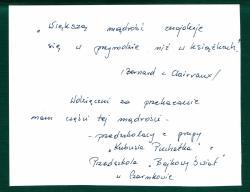 „Większą mądrość znajduje
się w przyrodzie niż w książkach"
/Bernard z Clairvaux/
Wdzięczni za przekazanie
nam części tej mądrości -
- przedszkolacy z grupy
„Kubusia Puchatka" z
Przedszkola „Bajkowy Świat"
w Czarnkowie